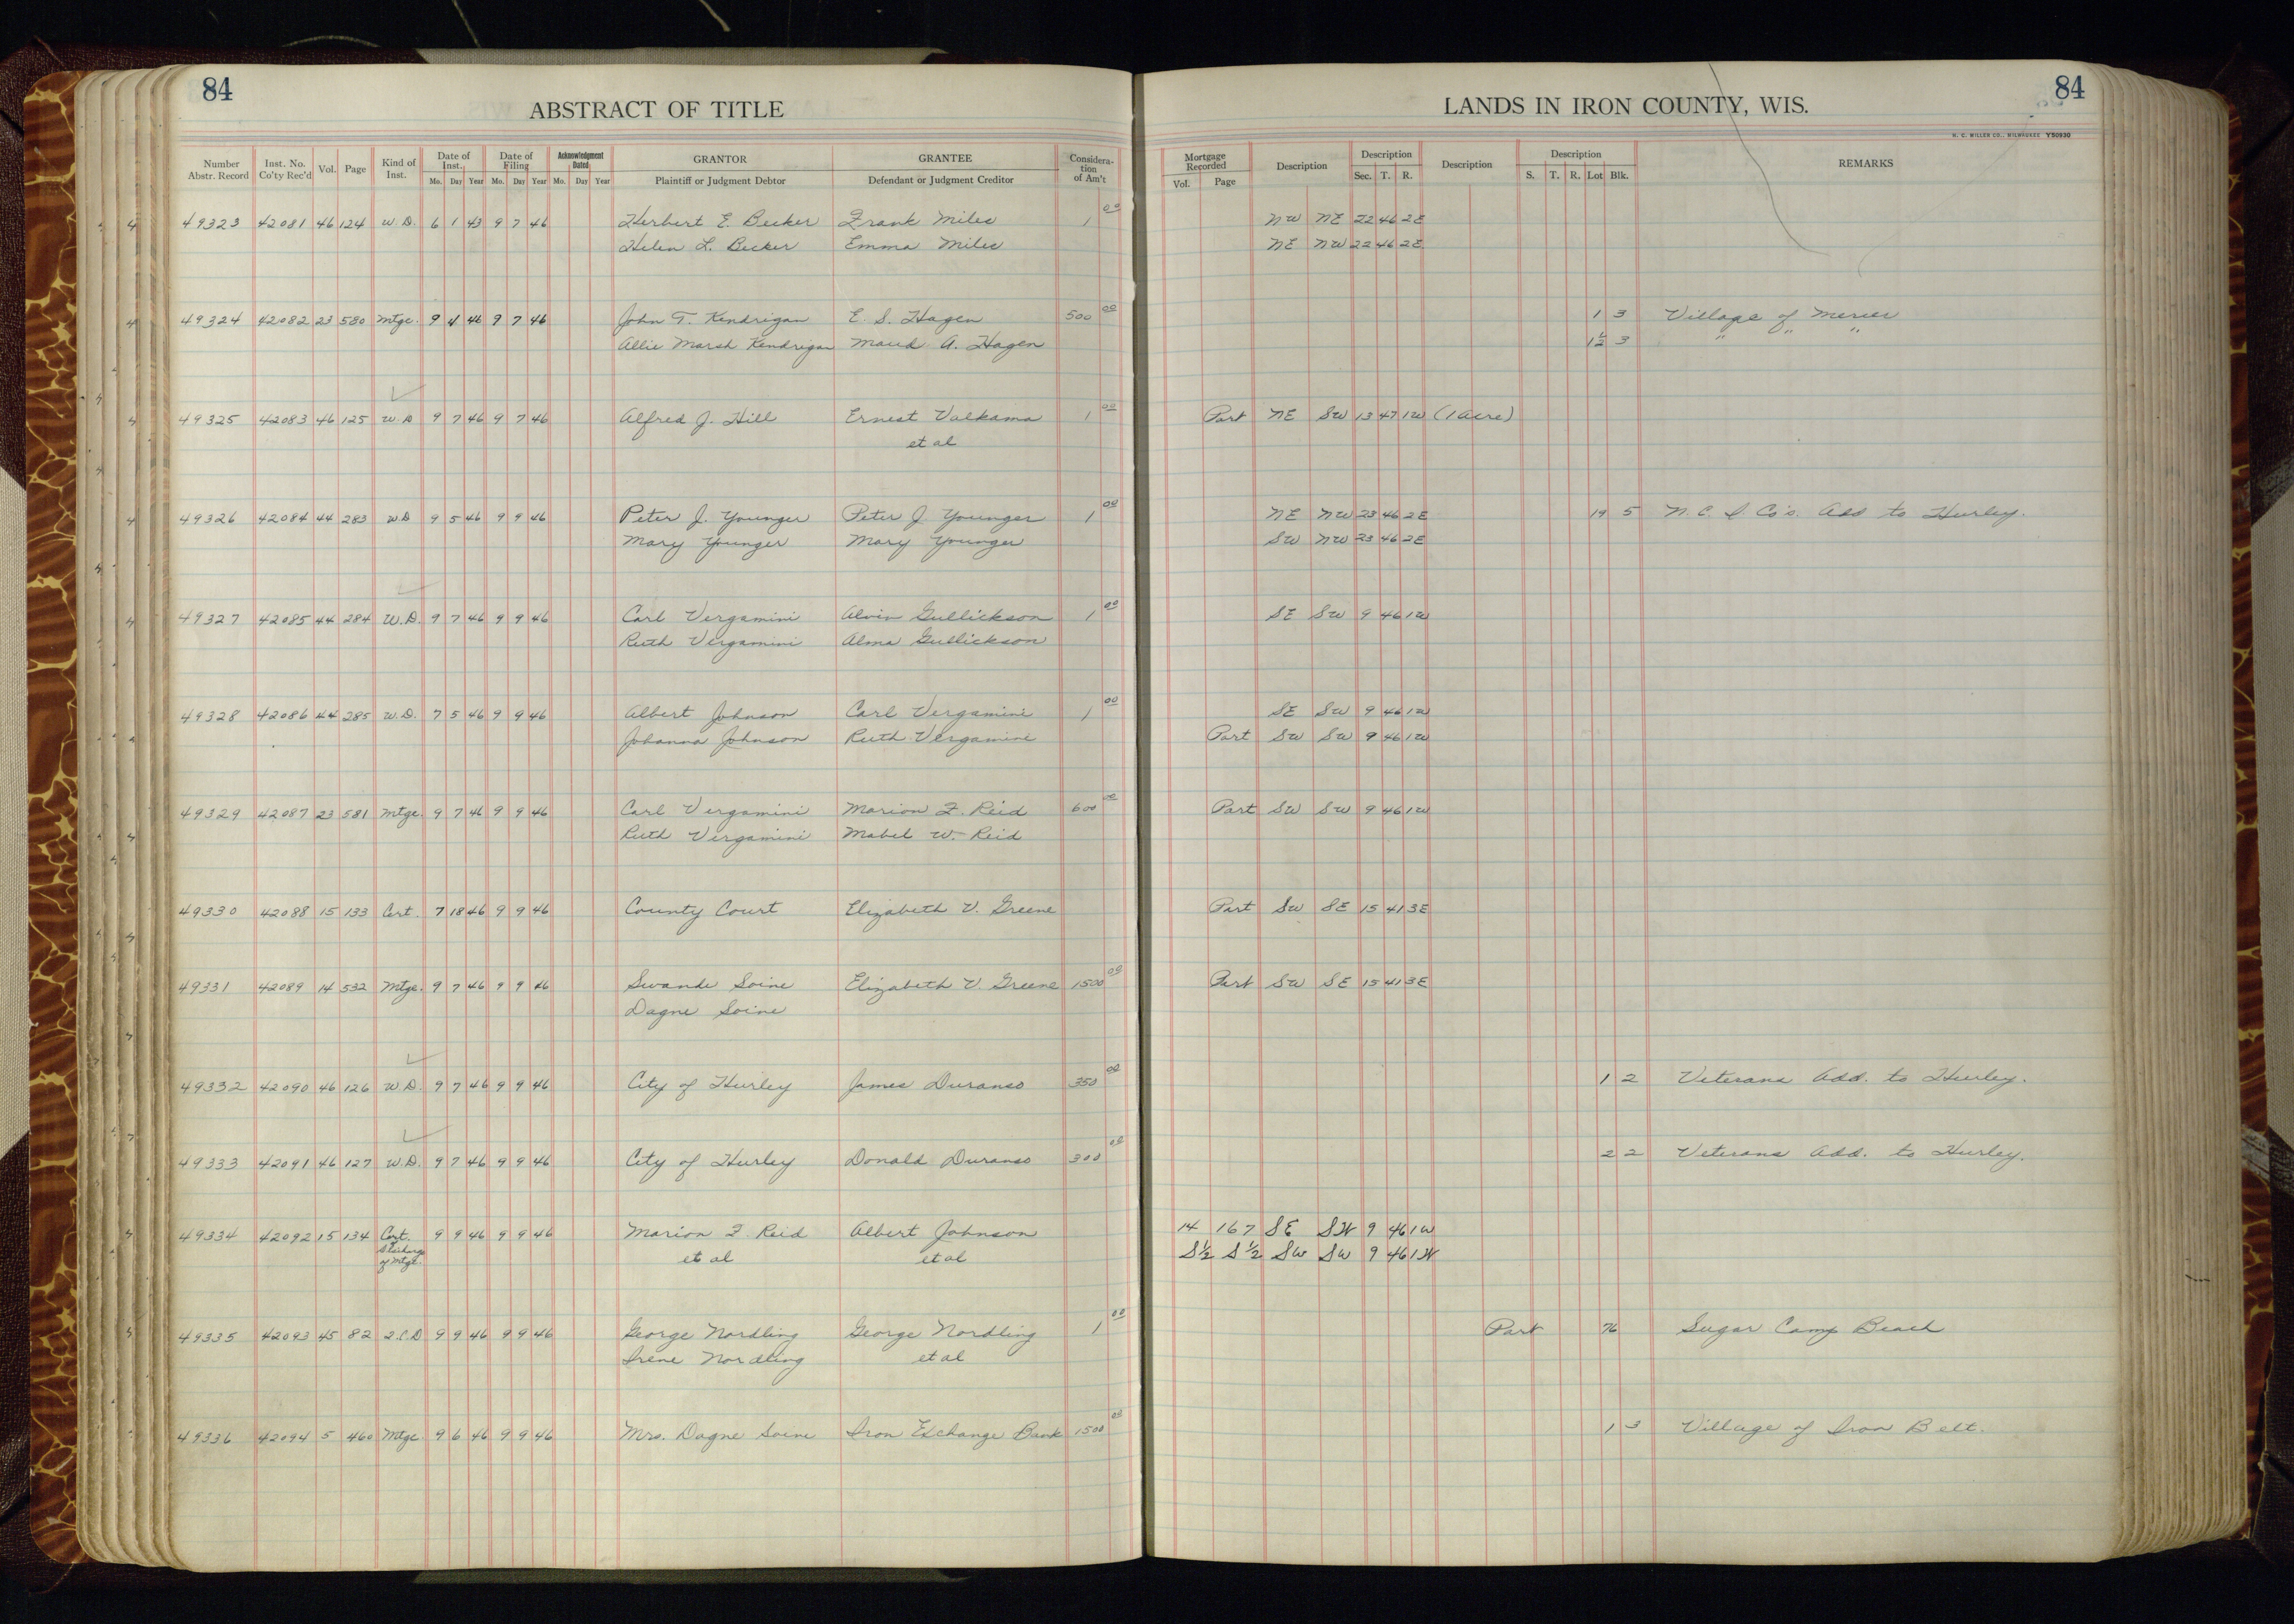 84
ABSTRACT OF TITLE
Number Abstr. Record Inst. No. Co'ty Rec'd Vol. Page Kind of Inst. Date of Inst. Mo. Day Year Date of Filing Mo. Day Year Acknowledgment Dated Mo. Day Year GRANTOR Plaintiff or Judgment Debtor GRANTEE Defendant or Judgment Creditor Considera-tion of Am't
49323 42081 46 124 W.D. 6 1 43 9 7 46 Herbert E. Becker Frank Miles 1 00
Helen L. Becker Emma Miles
49324 42082 23 580 Mtge. 9 4 46 9 7 46 John T. Kendrigan E. S. Hagen 500 00
Allie Marsh Kendrigan Maud A. Hagen
49325 42083 46 125 W.D 9 7 46 9 7 46 Alfred J. Hill Ernest Valkama 1 00
et al
49326 42084 44 283 W.D 9 5 46 9 9 46 Peter J. Younger Peter J. Younger 1 00
Mary Younger Mary Younger
49327 42085 44 284 W.D. 9 7 46 9 9 46 Carl Vergamini Alvin Gullickson 1 00
Ruth Vergamini Alma Gullickson
49328 42086 44 285 W.D. 7 5 46 9 9 46 Albert Johnson Carl Vergamini 1 00
Johanna Johnson Ruth Vergamini
49329 42087 23 581 Mtge. 9 7 46 9 9 46 Carl Vergamini Marion F. Reid 600 00
Ruth Vergamini Mabel W. Reid
49330 42088 15 133 Cert. 7 18 46 9 9 46 County Court Elizabeth V. Greene
49331 42089 14 532 Mtge. 9 7 46 9 9 46 Swande Soine Elizabeth V. Greene 1500 00
Dagne Soine
49332 42090 46 126 W.D. 9 7 46 9 9 46 City of Hurley James Duranso 350 00
49333 42091 46 127 W.D. 9 7 46 9 9 46 City of Hurley Donald Duranso 300 00
49334 42092 15 134 Cert. 9 9 46 9 9 46 Marion F. Reid Albert Johnson
Discharge of Mtge. et al et al
49335 42093 45 82 Q.C.D 9 9 46 9 9 46 George Nordling George Nordling 1 00
Irene Nordling et al
49336 42094 5 460 Mtge. 9 6 46 9 9 46 Mrs. Dagne Soine Iron Exchange Bank 1500 00
84
LANDS IN IRON COUNTY, WIS.
H. C. MILLER CO., MILWAUKEE Y50930
Mortgage Recorded Vol. Page Description Description Sec. T. R. Description Description S. T. R. Lot Blk. REMARKS
NW NE 22 46 2E
NE NW 22 46 2E
1 3 Village of Mercer
1½ 3 " " "
Part NE SW 13 47 1W (1 Acre)
NE NW 23 46 2E 19 5 N. C. I. Co's. Add to Hurley.
SW NW 23 46 2E
SE SW 9 46 1W
SE SW 9 46 1W
Part SW SW 9 46 1W
Part SW SW 9 46 1W
Part SW SE 15 41 3E
Part SW SE 15 41 3E
1 2 Veterans Add. to Hurley.
2 2 Veterans Add. to Hurley.
14 167 SE SW 9 46 1W
S½ S½ SW SW 9 46 1W
Part 76 Sugar Camp Beach
1 3 Village of Iron Belt.